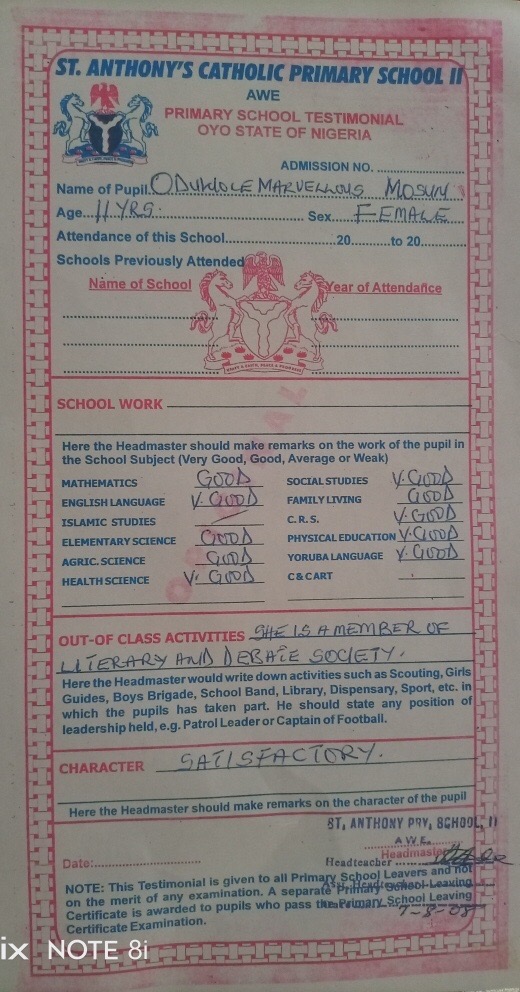 ST. ANTHONY'S CATHOLIC PRIMARY SCHOOL II
AWE
PRIMARY SCHOOL TESTIMONIAL
OYO STATE OF NIGERIA
ADMISSION NO.
Name of Pupil. ODUWOLE MARVELLOUS MOSUN
Age. 11 YRS. Sex. FEMALE
Attendance of this School 20 to 20
Schools Previously Attended
Name of School Year of Attendance
SCHOOL WORK
Here the Headmaster should make remarks on the work of the pupil in
the School Subject (Very Good, Good, Average or Weak)
MATHEMATICS GOOD SOCIAL STUDIES V. GOOD
ENGLISH LANGUAGE V. GOOD FAMILY LIVING GOOD
ISLAMIC STUDIES C.R.S. V. GOOD
ELEMENTARY SCIENCE GOOD PHYSICAL EDUCATION V. GOOD
AGRIC. SCIENCE GOOD YORUBA LANGUAGE V. GOOD
HEALTH SCIENCE V. GOOD C & C ART
OUT-OF CLASS ACTIVITIES SHE IS A MEMBER OF
LITERARY AND DEBATE SOCIETY.
Here the Headmaster would write down activities such as Scouting, Girls
Guides, Boys Brigade, School Band, Library, Dispensary, Sport, etc. in
which the pupils has taken part. He should state any position of
leadership held, e.g. Patrol Leader or Captain of Football.
CHARACTER SATISFACTORY.
Here the Headmaster should make remarks on the character of the pupil
ST. ANTHONY PRY. SCHOOL, II
AWE.
Headmaster
Date: Headteacher
NOTE: This Testimonial is given to all Primary School Leavers and not
on the merit of any examination. A separate Primary School Leaving
Certificate is awarded to pupils who pass the Primary School Leaving
Certificate Examination. 7-8-08
ix NOTE 8i